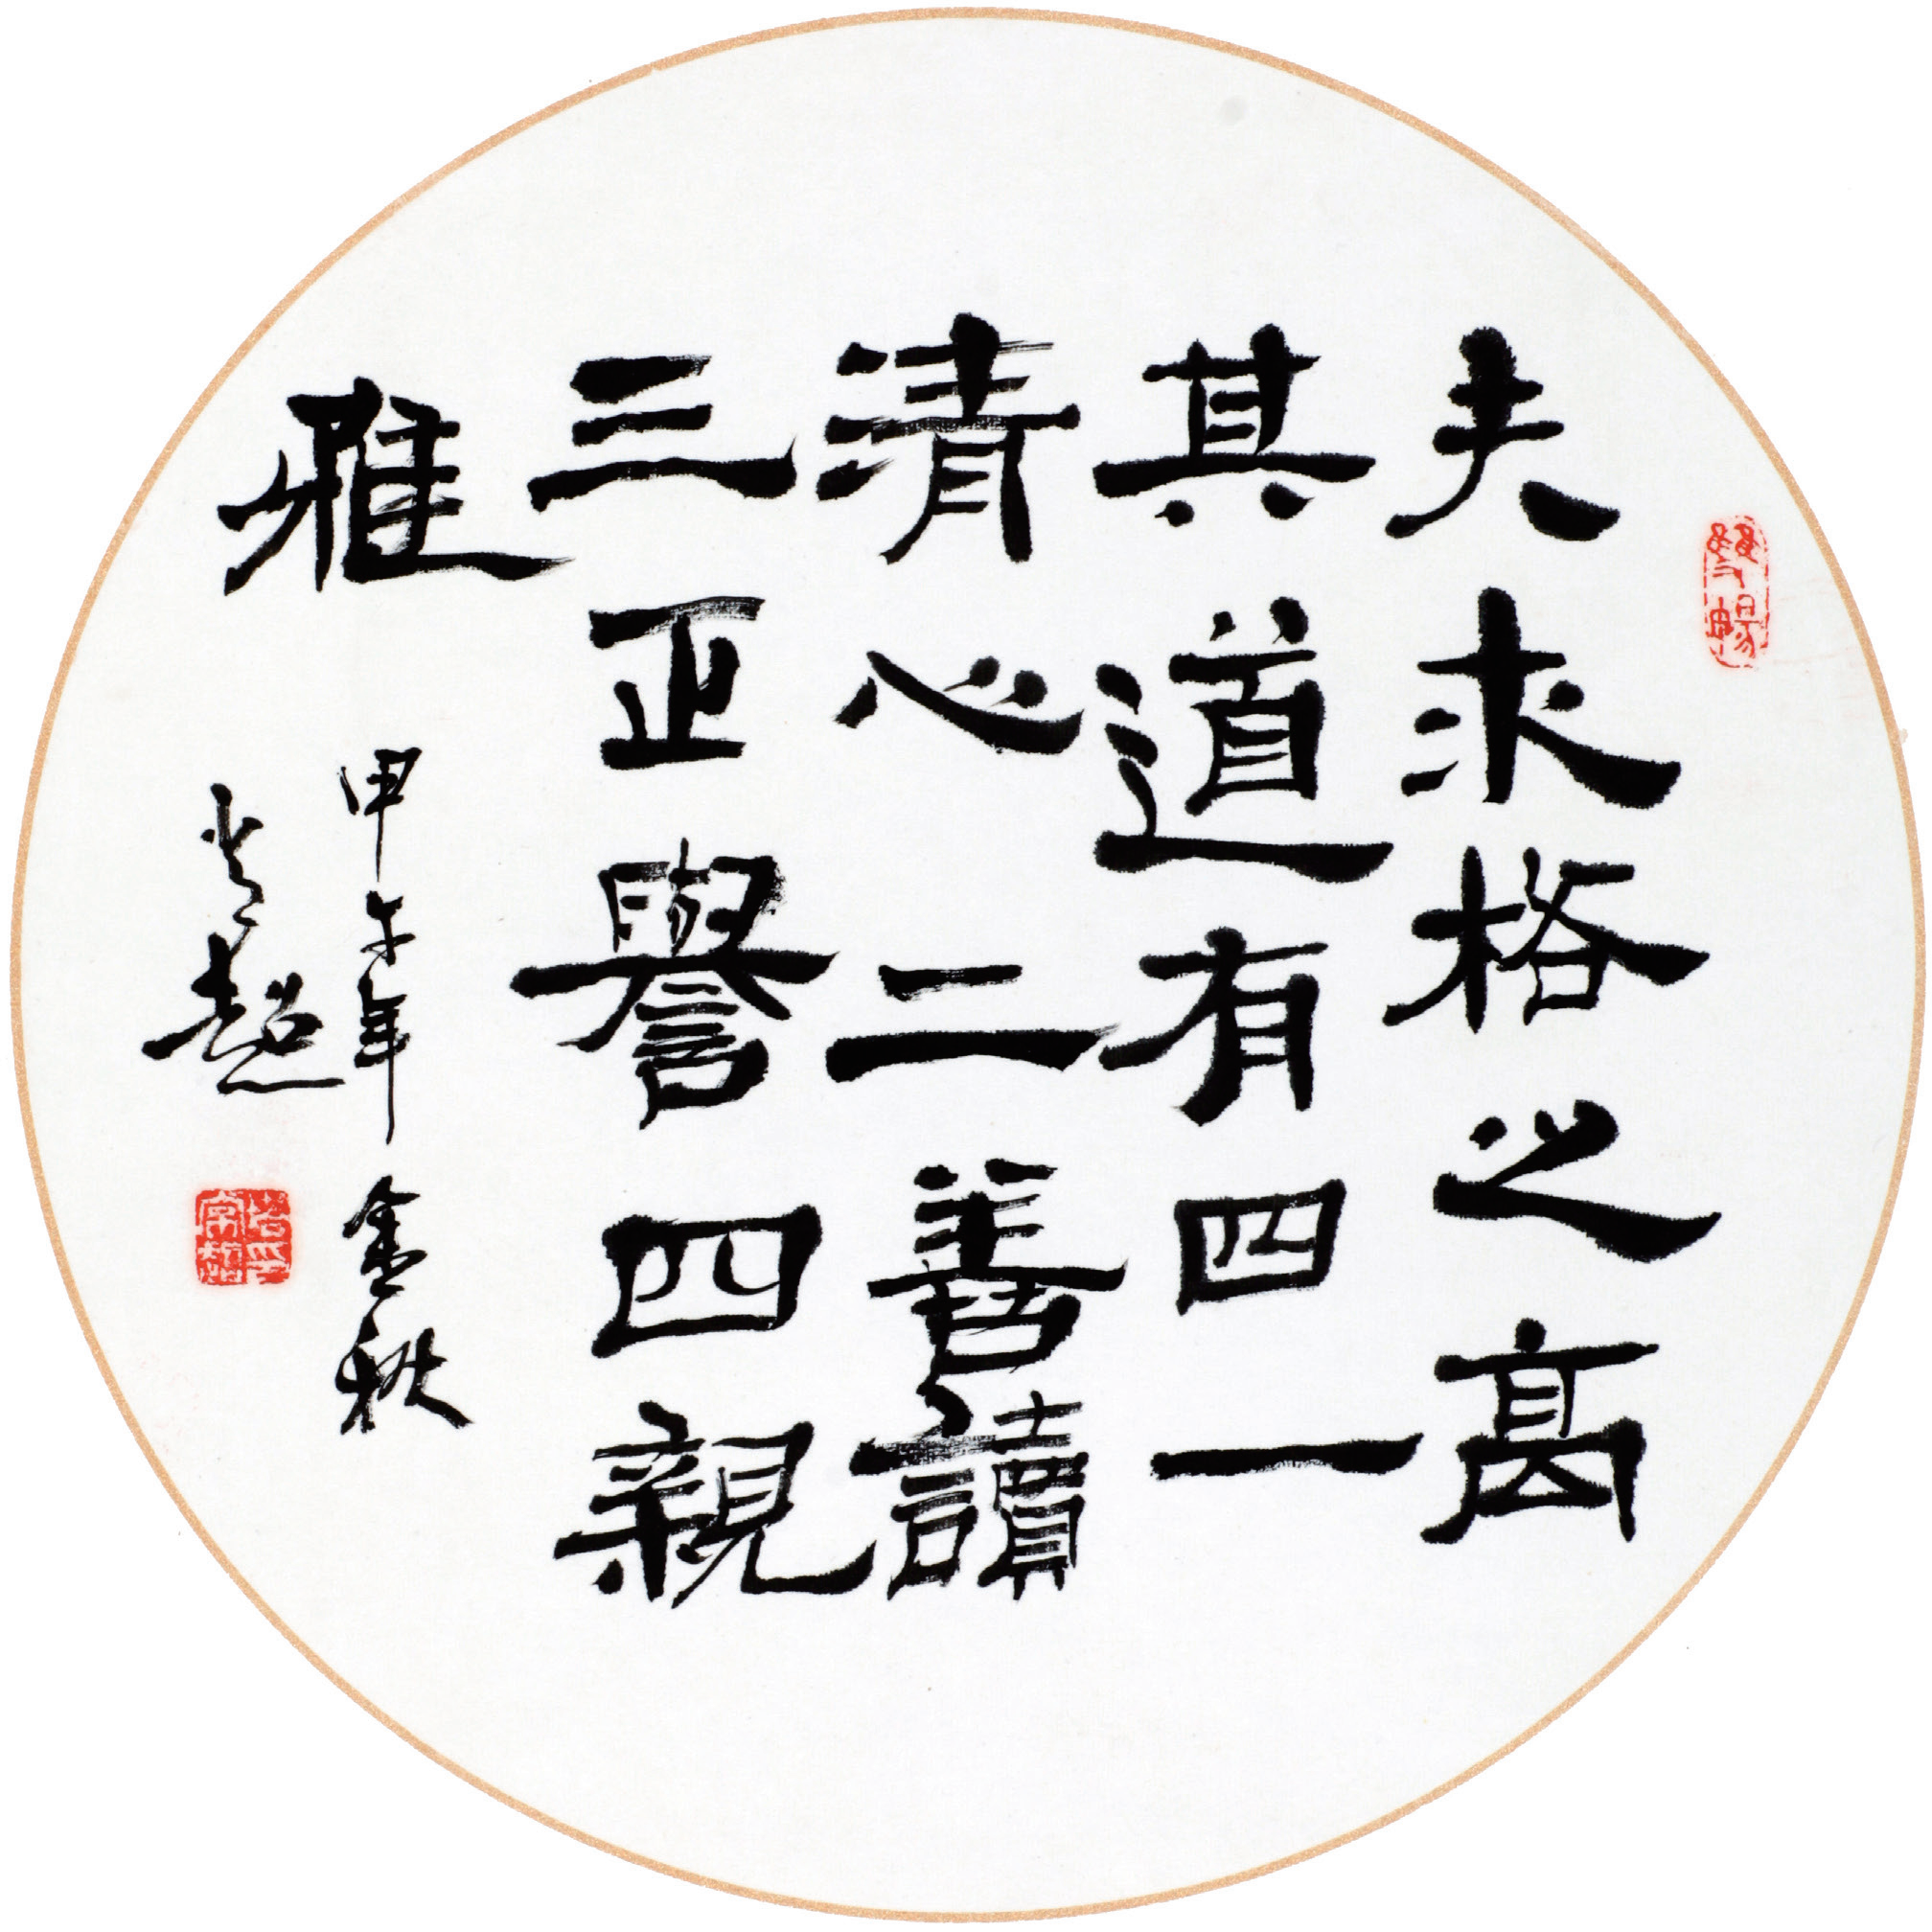 夫求格之高
其道有四一
清心二善讀
三正譽四親
雅
甲午年金秋
超